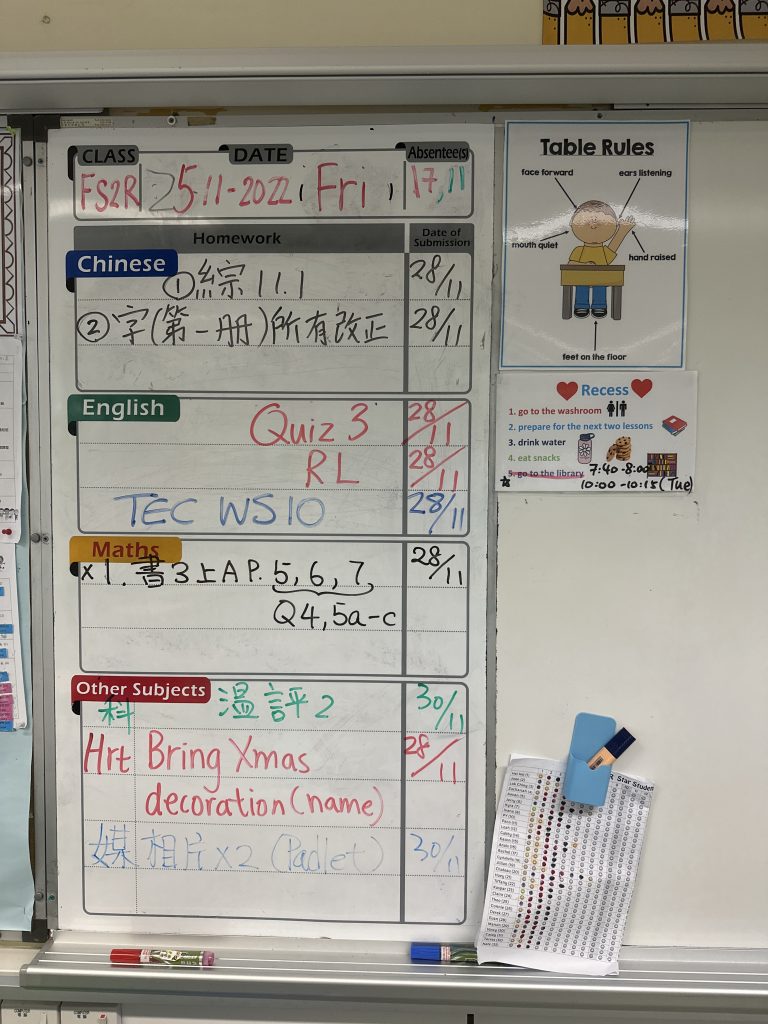 CLASS DATE Absentee(s)
FS2R 25-11-2022 (Fri) 17, 11
Homework Date of Submission
Chinese
① 綜 11.1 28/11
② 字(第一册)所有改正 28/11
English
Quiz 3 28/11
RL 28/11
TEC WS10 28/11
Maths
x1. 書3上A P. 5, 6, 7 28/11
Q4, 5a-c
Other Subjects
科 溫評2 30/11
Hrt Bring Xmas 28/11
decoration (name)
媒 相片x2 (Padlet) 30/11
Table Rules
face forward
ears listening
mouth quiet
hand raised
feet on the floor
Recess
1. go to the washroom
2. prepare for the next two lessons
3. drink water
4. eat snacks
5. go to the library 7:40-8:00
10:00-10:15 (Tue)
Star Studen